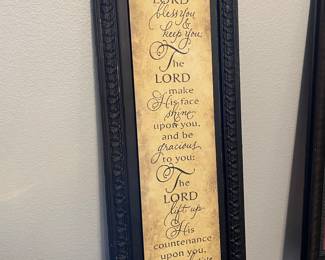 LORD
bless you &
keep you
The
LORD
make
His face
shine
upon you,
and be
gracious
to you:
The
LORD
lift up
His
countenance
upon you,